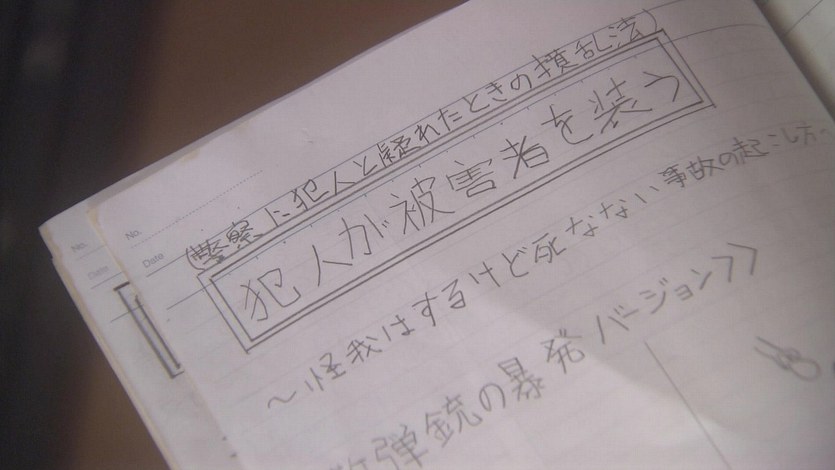 No.
Date
No.
Date
(警察に犯人と疑れたときの撹乱法)
犯人が被害者を装う
~怪我はするけど死なない事故の起こし方~
散弾銃の暴発バージョン>>